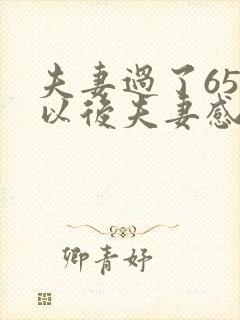 夫妻過了65
以後夫妻感
卿青妤